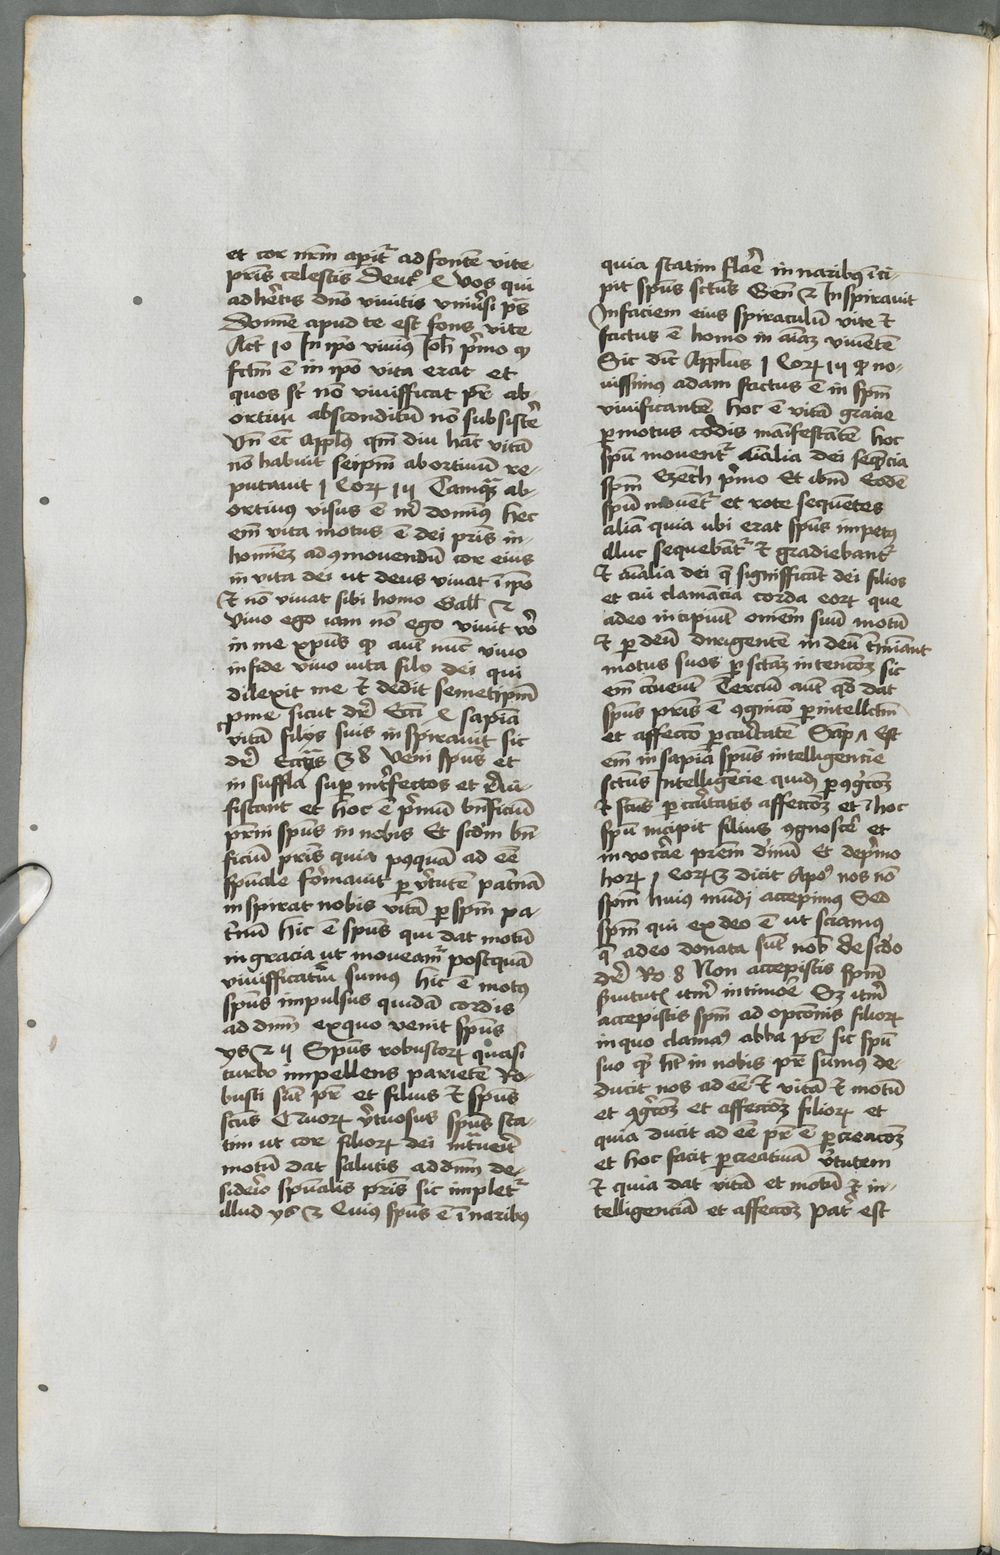 et cor nr̄m apit᷑ ad fontē vite
pr̄is celestis Deut᷑ 4 Vos qui
adh̄etis dn̄o viuitis vniūsi ps̄
Domīe apud te est fons vite
Act 10 In ip̄o viuiꝰ Joh̄ pͥmo qͦ
fc̄tm ē in ip̄o vita erat et
quos st̄ nō viuifficat pr̄ ab-
ortiui absconditū nō subsistēr̄
Vn̄ ec̄ Appl̄s qm̄ diu hāc vitā
nō habuit seip̄m abortiuū re-
putauit 1 Corꝝ 15 Tamqꝫ ab-
ortiuꝰ visus ē m̄ domīus hec
em̄ vita motus ē dei pr̄is in-
hominē ad ꝯmouendū cor eius
in vita dei ut deus viuat ī ip̄o
Et nō viuat sibi homo Gall̄ 2
Viuo ego iam nō ego viuit vō
in me xp̄us qͦ aut̄ nūc viuo
in fide viuo vita filo dei qui
dilexit me Et dedit semetip̄m
ꝓ me sicut dr̄ Ecc̄i 4 sapīa
vitā filijs suis inspirauit sic
dr̄ 38 Veni spūs et
in suffla sup int̄fectos et
et hoc ē pͥmū bn̄ficiū
pr̄m spūs in nobis Et scd̄m bn̄-
ficiū pr̄is quia pꝰquā ad eē
sp̄uale formauit ꝑ v̄tutē pat̄nā
inspirat nobis vitā ꝑ spm̄ pa-
t̄nū hic ē spūs qui dat motū
in gracia ut moueam᷑ postquā
viuifficati sumꝰ hic ē motꝰ
spūs impulsus quidā cordis
ad dn̄m ex quo venit spūs
ys 25 Spūs robustorꝝ quasi
turbo impellens parietē Ro-
busti sūt pr̄ et filius Et spūs
sc̄us v̄tuosus spūs sta-
tim ut cor filiorꝝ dei int̄uenit
motū dat salutis ad dn̄m de-
sid̄io sp̄ualis pr̄is sic implet᷑
illud ys 3 Cuiꝰ spūs ē ī naribꝰ
quia statim flar̄e in naribꝰ īci-
pit spūs sc̄tus Gen̄ 2 Inspirauit
In faciem eius spiraculū vite Et
factus ē homo in aīaꝫ viuentē
Sic dic̄ Appl̄us 1 Corꝝ 15 qͦ no-
uissimus adam factus ē in spm̄
viuificantē hoc ē vitā gracie
ꝑ motus cordis māifestātē hoc
spū mouent᷑ aīalia dei seqn̄cia
spm̄ Ezech pͥmo Et ibm̄ Eodē
spū mouent᷑ et rote sequentes
aliā quia ubi erat spūs impetꝰ
illuc sequebāt᷑ Et gradiebant᷑
Et aīalia dei q̄ signifficāt dei filios
et cū clamācia corda eorꝝ que
a deo incipiūt omēm suū motū
Et ꝑ deū dirigentē in deū t̄miāant
motus suos ꝑ sc̄tam intencōꝫ sic
em̄ cōueniūt Terciū aut̄ qd̄ dat
spūs pr̄is ē ꝯgnicō ꝑ intellc̄tm
et affecto ꝑ caritatē Sap 7 Est
em̄ in sapīa spūs intelligencie
sc̄tus Intelligēcie quidē ꝑ ꝯgicōꝫ
Et sc̄us ꝑ caritatis affeccōꝫ et ī hoc
spū incipit filius ꝯgnoscēr̄ et
inuocār̄e pr̄em dīnū Et de pͥmo
horꝝ 1 Corꝝ 3 dicit Apoꝰ nos nō
spm̄ huiꝰ mūdj accepimꝰ Sed
spm̄ qui ex deo ē ut sciamꝰ
q̄ a deo donata sūt nob̄ de scd̄o
dr̄ Ro 8 Non accepistis spm̄
s̄uitutꝭ it̄m in timōe Sꝫ it̄m
accepistis spm̄ adopcōnis filiorꝝ
in quo clamaꝰ abba pr̄ sic spū
suo qm̄ ht̄ in nobis pr̄ sumus de-
ducit nos ad eē Et vitā Et motū
et ꝯgicōꝫ et affeccōꝫ filiorꝝ et
quia ducit ad eē pr̄ ē ꝑ creacōꝫ
et hoc facit ꝑ creatiuā v̄tutem
Et quia dat vitā et motū Et in-
telligenciā et affeccōꝫ pat̄ est